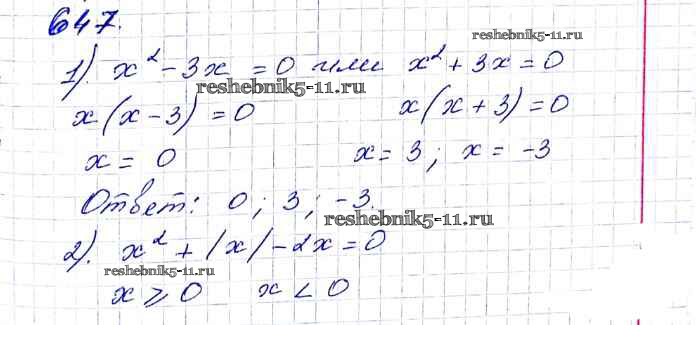 647.
reshebnik5-11.ru
1). x² - 3x = 0 или x² + 3x = 0
reshebnik5-11.ru
x(x - 3) = 0 x(x + 3) = 0
x = 0 x = 3; x = -3
Ответ: 0; 3; -3.
reshebnik5-11.ru
2). x² + |x| - 2x = 0
reshebnik5-11.ru
x ⩾ 0 x < 0